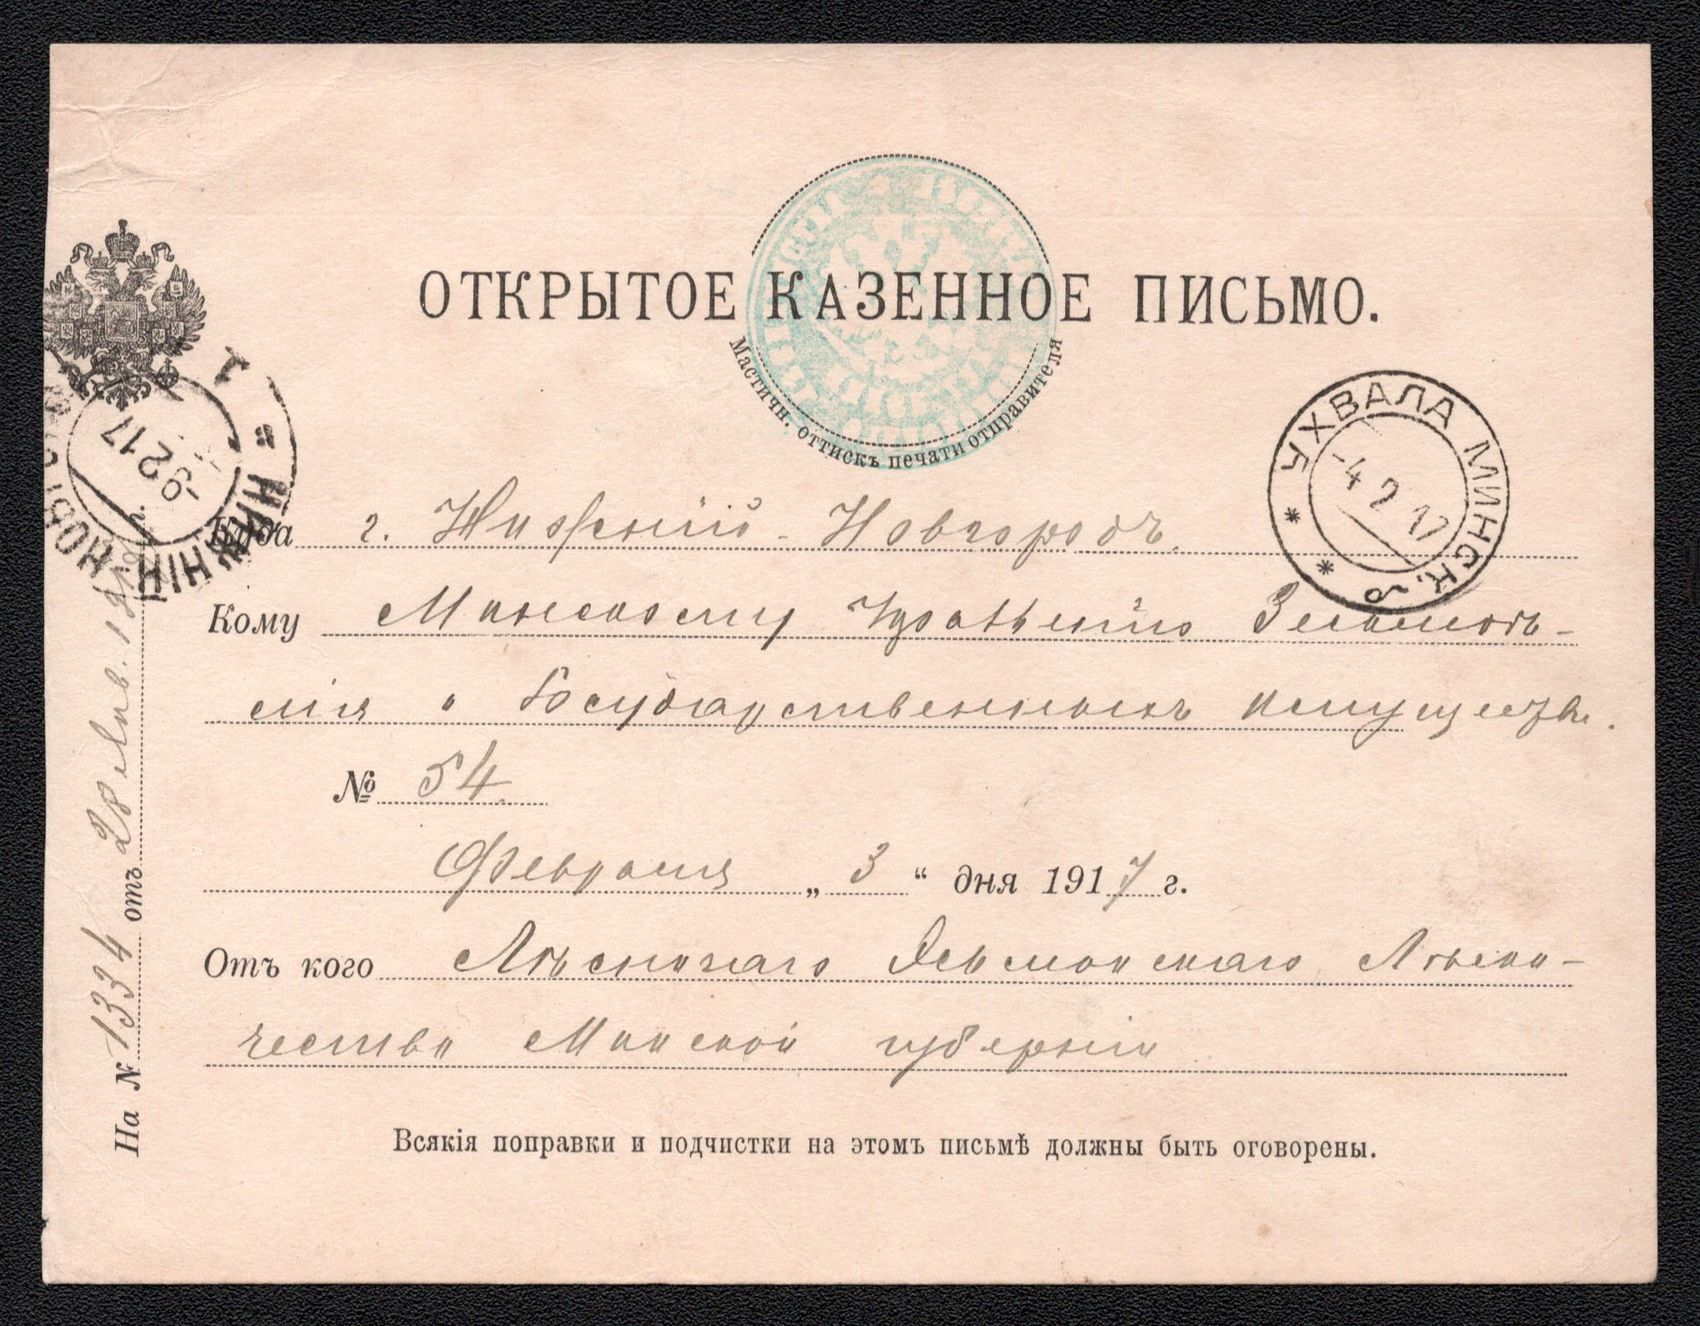 ОТКРЫТОЕ КАЗЕННОЕ ПИСЬМО.
Мастичн. оттискъ печати отправителя
УХВАЛА МИНСК. Г.
-4 2 17
НИЖНІЙ НОВГ
-9 2 17
Куда г. Нижній-Новгородъ.
Кому Минскому Управленію Землюдѣ-
лія и Государственныхъ имуществъ.
№ 54.
Февраля „ 3 “ дня 1917 г.
Отъ кого Лѣсничаго Лѣсни-
чества Минской губерніи
Всякія поправки и подчистки на этомъ письмѣ должны быть оговорены.
На № 1334 отъ 28 Янв. 191 г.